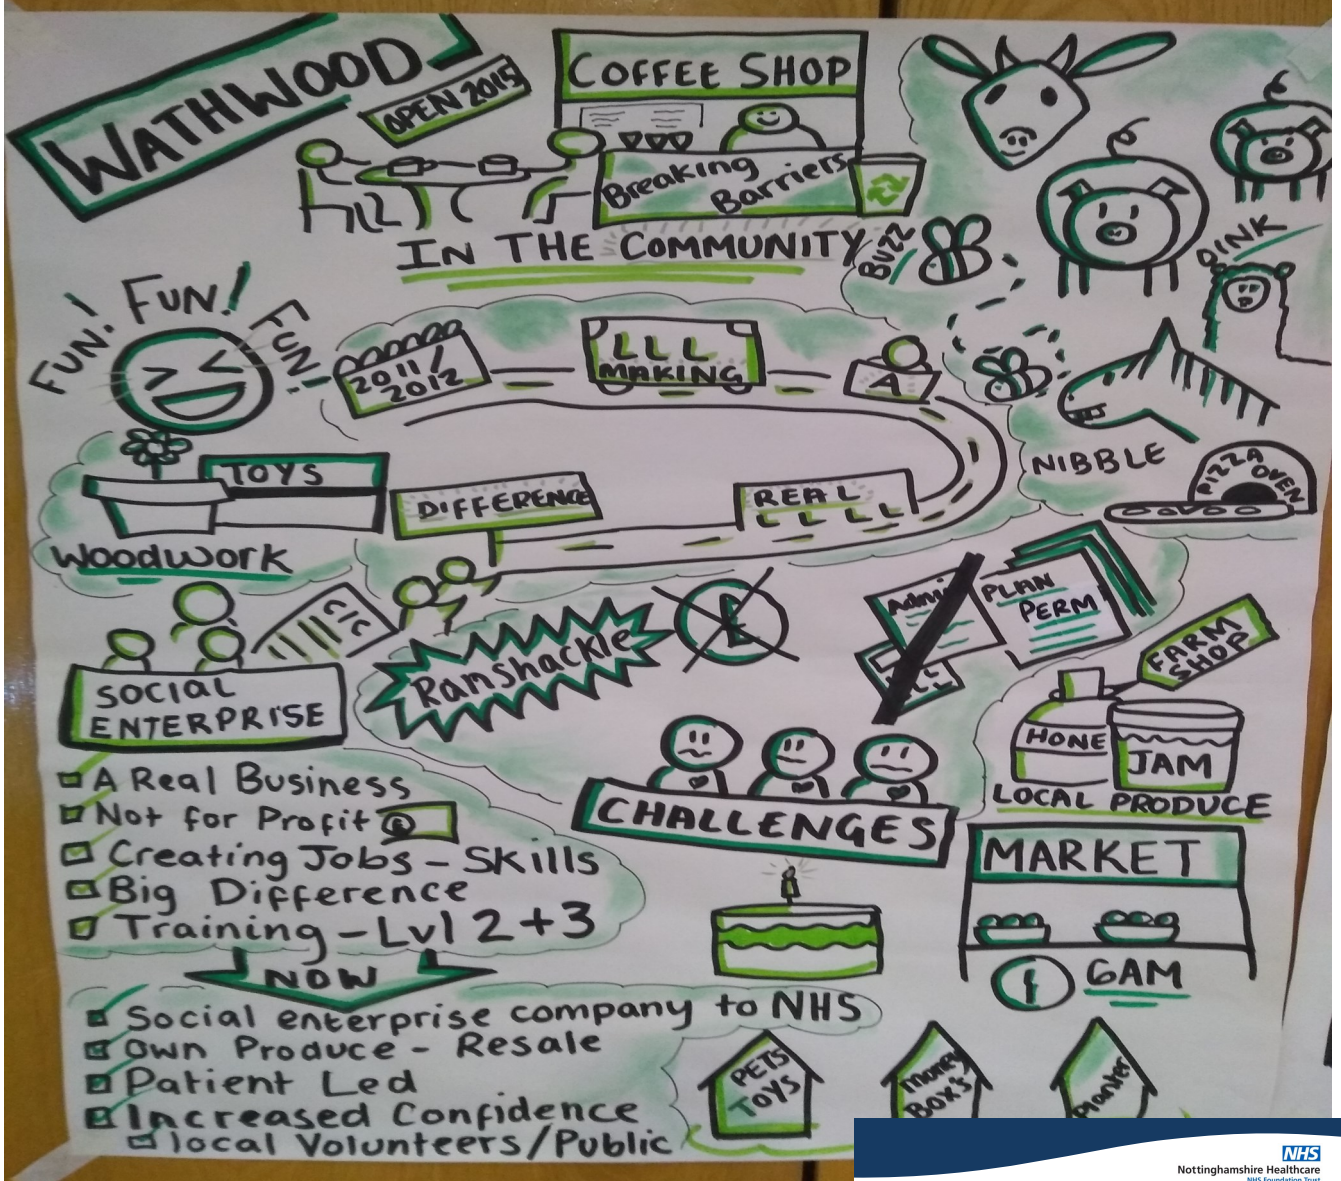 WATHWOOD
OPEN 2015
COFFEE SHOP
Breaking
Barriers
IN THE COMMUNITY
BUZZ
OINK
FUN! FUN! FUN!
2011/
2012
LLL
MAKING
A
REAL
LLLL
DIFFERENCE
NIBBLE
PIZZA
OVEN
TOYS
Woodwork
CIC
SOCIAL
ENTERPRISE
Ramshackle
£
Admin
PLAN
PERM
FARM
SHOP
HONE
JAM
LOCAL PRODUCE
CHALLENGES
A Real Business
Not for Profit £
Creating Jobs - Skills
Big Difference
Training - Lvl 2 + 3
NOW
MARKET
6AM
Social enterprise company to NHS
Own Produce - Resale
Patient Led
Increased Confidence
local Volunteers/Public
PETS
TOYS
Money
BOX'S
Planter
NHS
Nottinghamshire Healthcare
NHS Foundation Trust